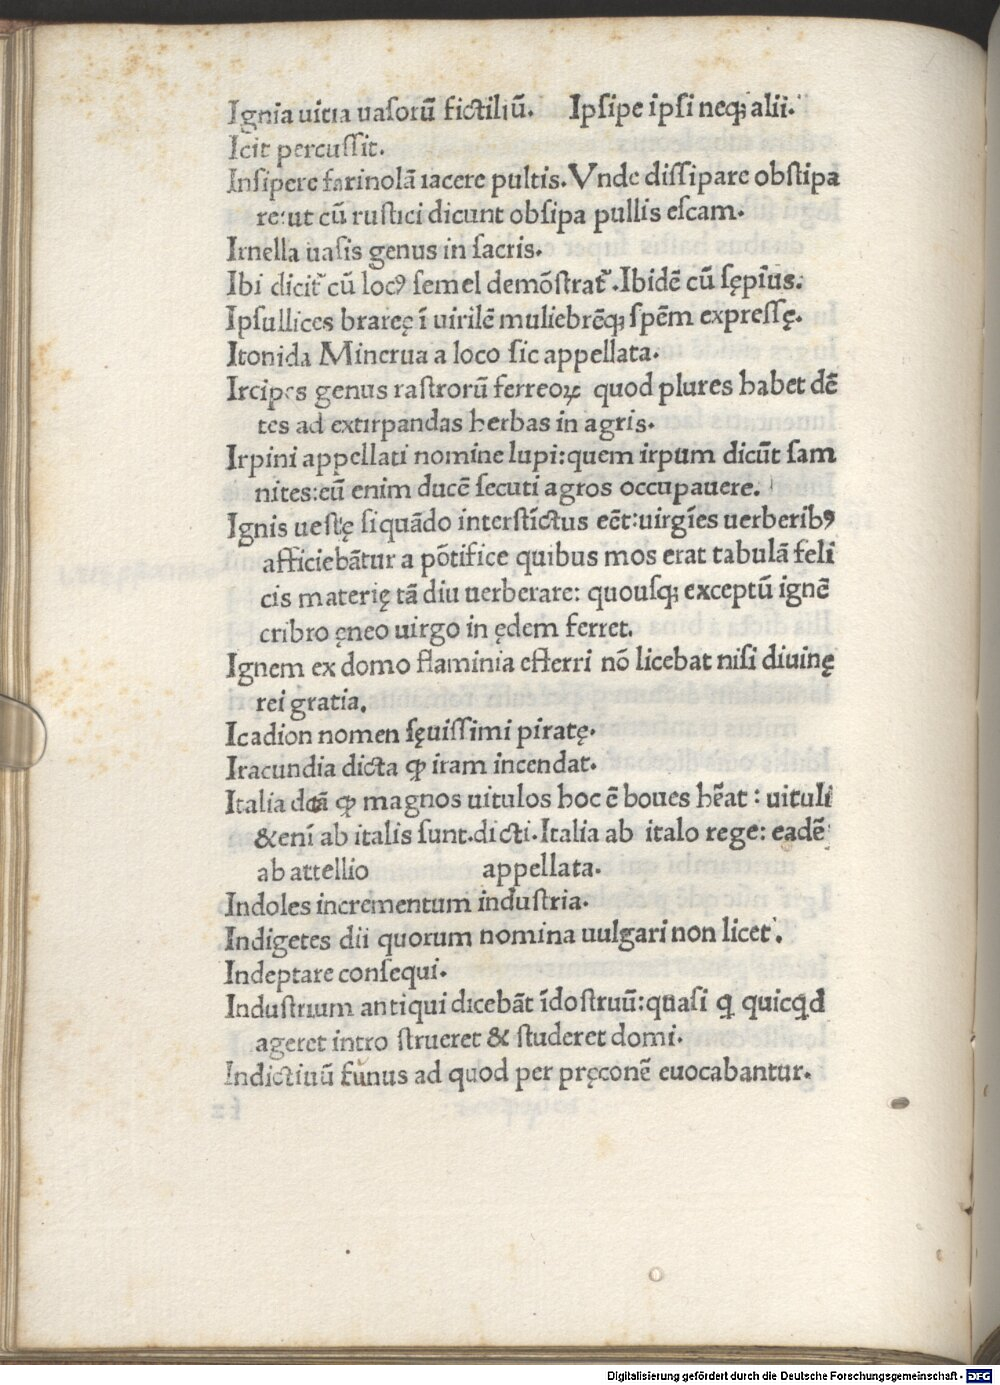 Ignia uitia uaſorū fictiliū. Ipſipe ipſi neqꝫ alii.
Icit percuſſit.
Inſipere farinolā iacere pultis. Vnde diſſipare obſtipa
re: ut cū ruſtici dicunt obſipa pullis eſcam.
Irnella uaſis genus in ſacris.
Ibi dicit᷑ cū locꝰ ſemel demōſtrat᷑. Ibidē cū ſępius.
Ipſullices brareę ī uirilē muliebrēqꝫ ſpēm expreſſę.
Itonida Minerua a loco ſic appellata.
Ircipes genus raſtrorū ferreoꝝ quod plures habet dē
tes ad extirpandas herbas in agris.
Irpini appellati nomine lupi: quem irpum dicūt ſam
nites: eū enim ducē ſecuti agros occupauere.
Ignis ueſtę ſi quādo interſtīctus eēt: uirgīes uerberibꝰ
afficiebātur a pōtifice quibus mos erat tabulā feli
cis materię tā diu uerberare: quouſqꝫ exceptū ignē
cribro ęneo uirgo in ędem ferret.
Ignem ex domo flaminia efferri nō licebat niſi diuinę
rei gratia.
Icadion nomen ſęuiſſimi piratę.
Iracundia dicta ꝙ iram incendat.
Italia dcā ꝙ magnos uitulos hoc ē boues hēat: uituli
& enī ab italis ſunt. dicti. Italia ab italo rege: eadē
ab attellio appellata.
Indoles incrementum induſtria.
Indigetes dii quorum nomina uulgari non licet.
Indeptare conſequi.
Induſtrium antiqui dicebāt īdoſtruū: quaſi q̄ quicq̄d
ageret intro ſtrueret & ſtuderet domi.
Indictiuū funus ad quod per pręconē euocabantur.
Digitalisierung gefördert durch die Deutsche Forschungsgemeinschaft - DFG